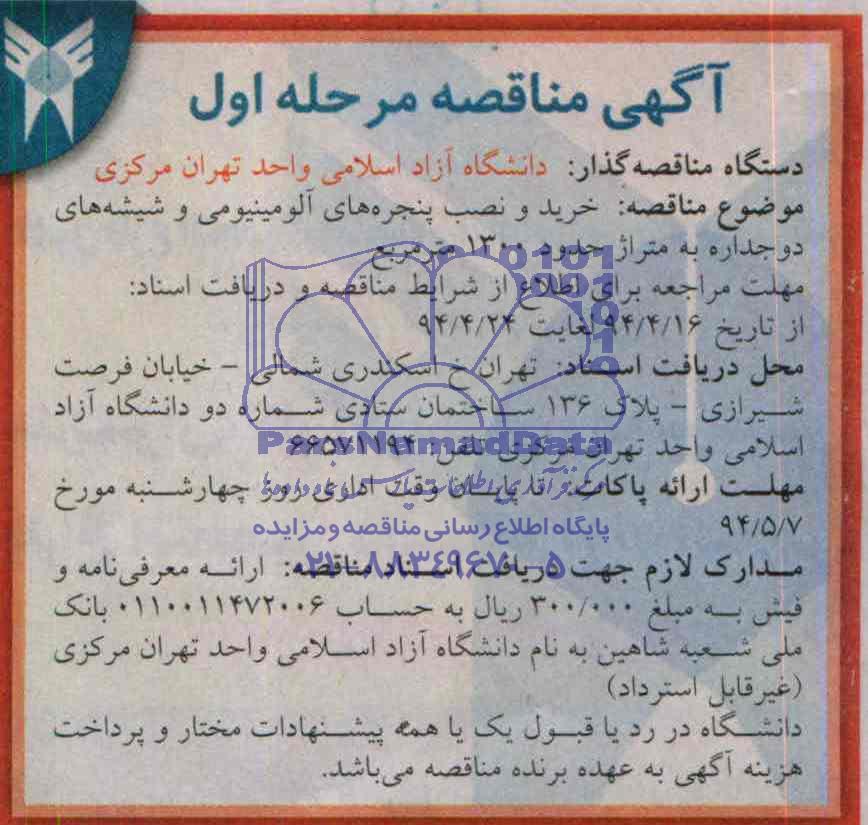 آگهی مناقصه مرحله اول
دستگاه مناقصه‌گذار: دانشگاه آزاد اسلامی واحد تهران مرکزی
موضوع مناقصه: خرید و نصب پنجره‌های آلومینیومی و شیشه‌های
دوجداره به متراژ حدود ۱۳۰۰ مترمربع
مهلت مراجعه برای اطلاع از شرایط مناقصه و دریافت اسناد:
از تاریخ ۹۴/۴/۱۶ لغایت ۹۴/۴/۲۴
محل دریافت اسناد: تهران خ اسکندری شمالی - خیابان فرصت
شیرازی - پلاک ۱۳۶ ساختمان ستادی شماره دو دانشگاه آزاد
اسلامی واحد تهران مرکزی تلفن: ۶۶۵۷۱۱۹۴
ParsNamadData
مهلت ارائه پاکات: تا پایان وقت اداری روز چهارشنبه مورخ
۹۴/۵/۷
پایگاه اطلاع رسانی مناقصه و مزایده
۰۲۱-۸۸۳۴۹۶۷۰-۵
مدارک لازم جهت دریافت اسناد مناقصه: ارائه معرفی‌نامه و
فیش به مبلغ ۳۰۰/۰۰۰ ریال به حساب ۰۱۱۰۰۱۱۴۷۲۰۰۶ بانک
ملی شعبه شاهین به نام دانشگاه آزاد اسلامی واحد تهران مرکزی
(غیرقابل استرداد)
دانشگاه در رد یا قبول یک یا همه پیشنهادات مختار و پرداخت
هزینه آگهی به عهده برنده مناقصه می‌باشد.